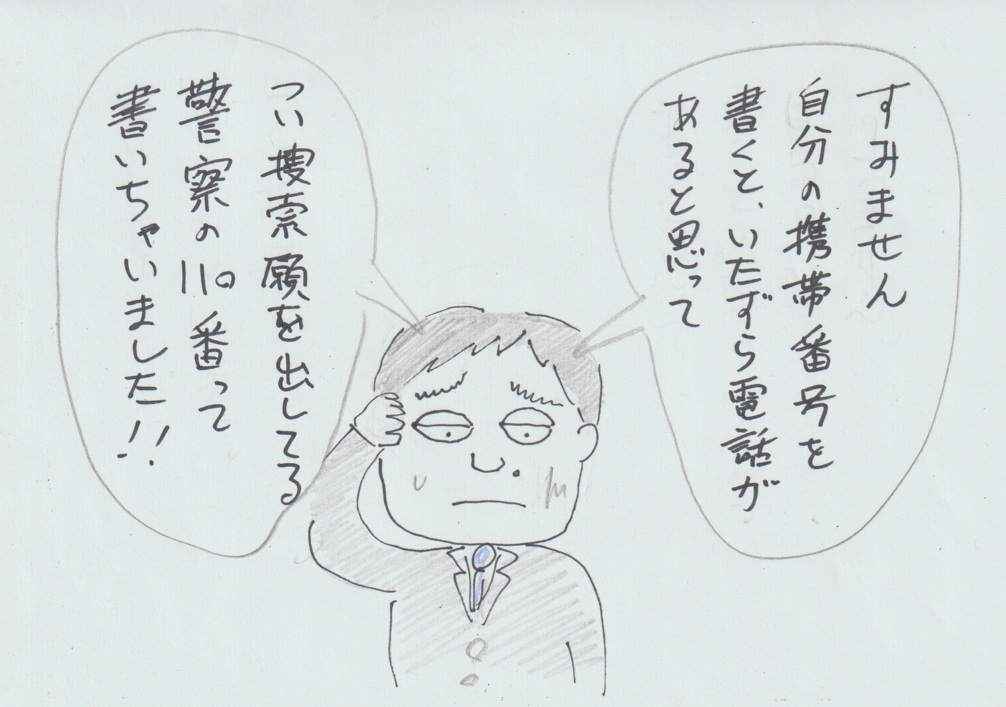 すみません
自分の携帯番号を
書くと、いたずら電話が
あると思って
つい捜索願を出してる
警察の110番って
書いちゃいました!!